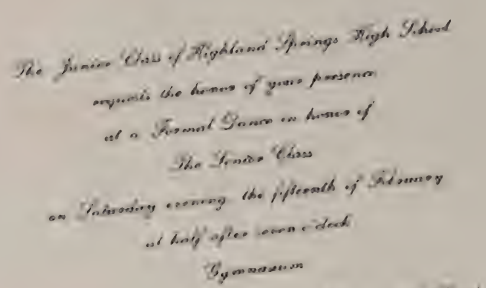 The Junior Class of Highland Springs High School
requests the honor of your presence
at a Formal Dance in honor of
The Senior Class
on Saturday evening the fifteenth of February
at half after seven o'clock
Gymnasium